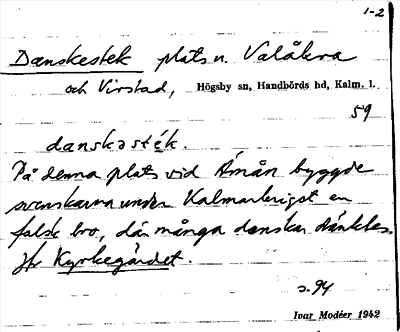 1-2
Danskestek plats n. Valåkra
och Virstad, Högsby sn, Handbörds hd, Kalm. l.
59
danskəsték.
På denna plats vid Åmån byggde
svenskarna under Kalmarkriget en
falsk bro, där många danskar dränktes.
Jfr Kyrkegärdet.
s. 94
Ivar Modéer 1942